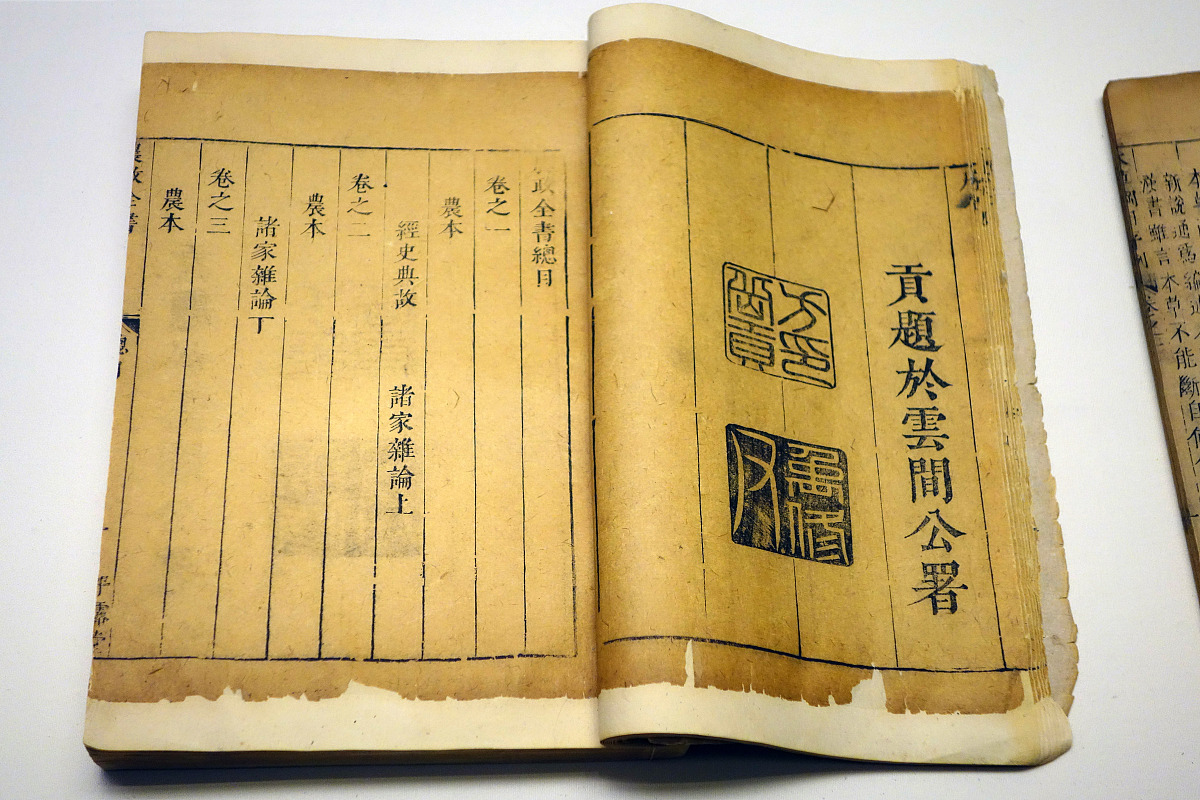 貢題於雲間公署
方岳貢印
禹修父
政全書總目
卷之一
農本
經史典故 諸家雜論上
卷之二
農本
諸家雜論下
卷之三
農本